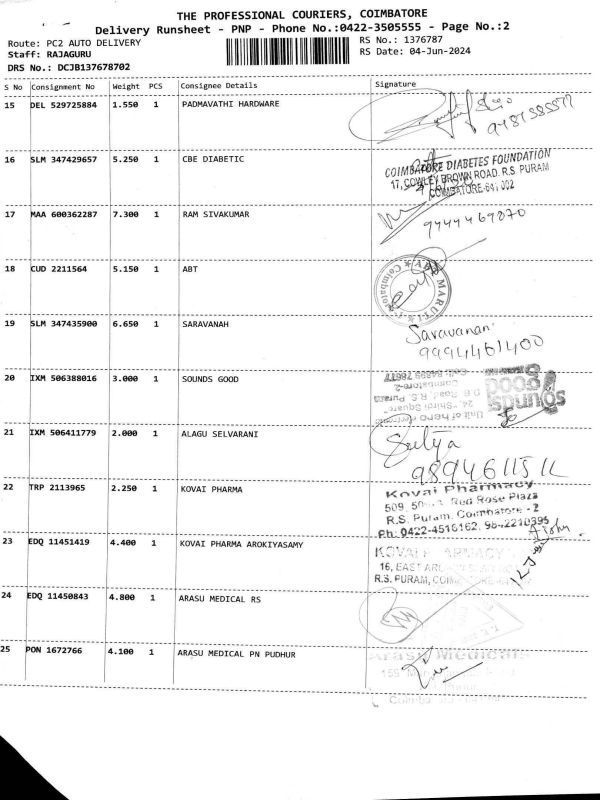 THE PROFESSIONAL COURIERS, COIMBATORE
Delivery Runsheet - PNP - Phone No.:0422-3505555 - Page No.:2
Route: PC2 AUTO DELIVERY
Staff: RAJAGURU
DRS No.: DCJB137678702
RS No.: 1376787
RS Date: 04-Jun-2024
S No Consignment No Weight PCS Consignee Details Signature
15 DEL 529725884 1.550 1 PADMAVATHI HARDWARE
16 SLM 347429657 5.250 1 CBE DIABETIC
COIMBATORE DIABETES FOUNDATION
17, COWLEY BROWN ROAD, R.S. PURAM
COIMBATORE-641 002
17 MAA 600362287 7.300 1 RAM SIVAKUMAR
9444469870
18 CUD 2211564 5.150 1 ABT
MARUTI
Coimbatore
19 SLM 347435900 6.650 1 SARAVANAH
Saravanan
9994461400
20 IXM 506388016 3.000 1 SOUNDS GOOD
sounds
GOOD
Unit of hero electronic
24 "Shirdi Square"
D.B. Road, R.S. Puram
Coimbatore-2
21 IXM 506411779 2.000 1 ALAGU SELVARANI
22 TRP 2113965 2.250 1 KOVAI PHARMA
Kovai Pharmacy
Red Rose Plaza
R.S. Puram, Coimbatore - 2
Ph: 0422-4516162, 98-42210395
23 EDQ 11451419 4.400 1 KOVAI PHARMA AROKIYASAMY
KOVAI PHARMACY
16, EAST
R.S. PURAM, COIMBATORE
24 EDQ 11450843 4.800 1 ARASU MEDICAL RS
25 PON 1672766 4.100 1 ARASU MEDICAL PN PUDHUR
Arasu Medicals